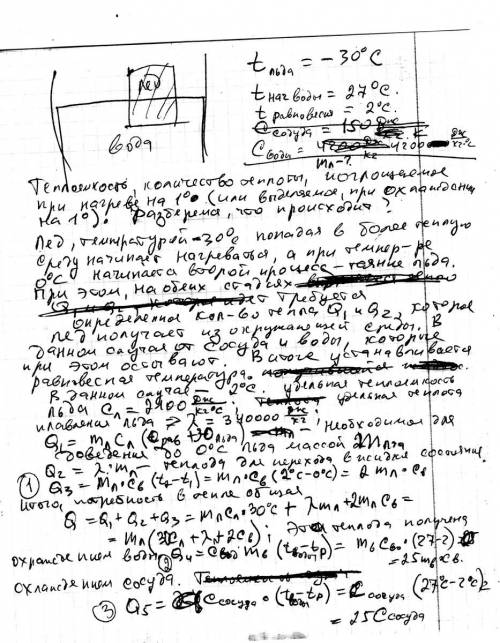 t льда = -30°C
лёд
t нач воды = 27°C.
t равновесия = 2°C.
C сосуда = 150
вода
C воды = 4200
mл-?
Теплоемкость, количество теплоты, поглощаемое
при нагреве на 1° (или выделяемое, при охлаждении
на 1°). Разберемся, что происходит?
Лед, температурой -30°C попадая в более теплую
среду начинает нагреваться, а при темпер-ре
0°C начинается второй процесс - таяние льда.
При этом, на обеих стадиях
требуется
определенное кол-во тепла Q1 и Q2, которое
лед получает из окружающей среды. В
данном случае от сосуда и воды, которые
при этом остывают. В итоге устанавливается
равновесная температура.
В данном случае - 2°C. удельная теплоемкость
льда Cл = 2100 Дж/кг°C; удельная теплота
плавления льда λ = 340000 Дж/кг; необходимое для
Q1 = mл Cл
доведения до 0°C льда массой
Q2 = λ·mл - теплота для перехода в жидкое состояние.
① Q3 = mл·Cв (t2-t1) = mл·Cв (2°C-0°C) = 2mл·Cв
Итого, потребность в тепле общая
Q = Q1+Q2+Q3 = mлCл·30°C + λmл + 2mлCв =
= mл(30Cл+λ+2Cв); Эта теплота получена
охлаждением воды ② Q4 = mв (27-2)
= 25mв Cв.
охлаждением сосуда.
③ Q5 = Cсосуда · = Cсосуда (27°C-2°C) =
= 25 Cсосуда